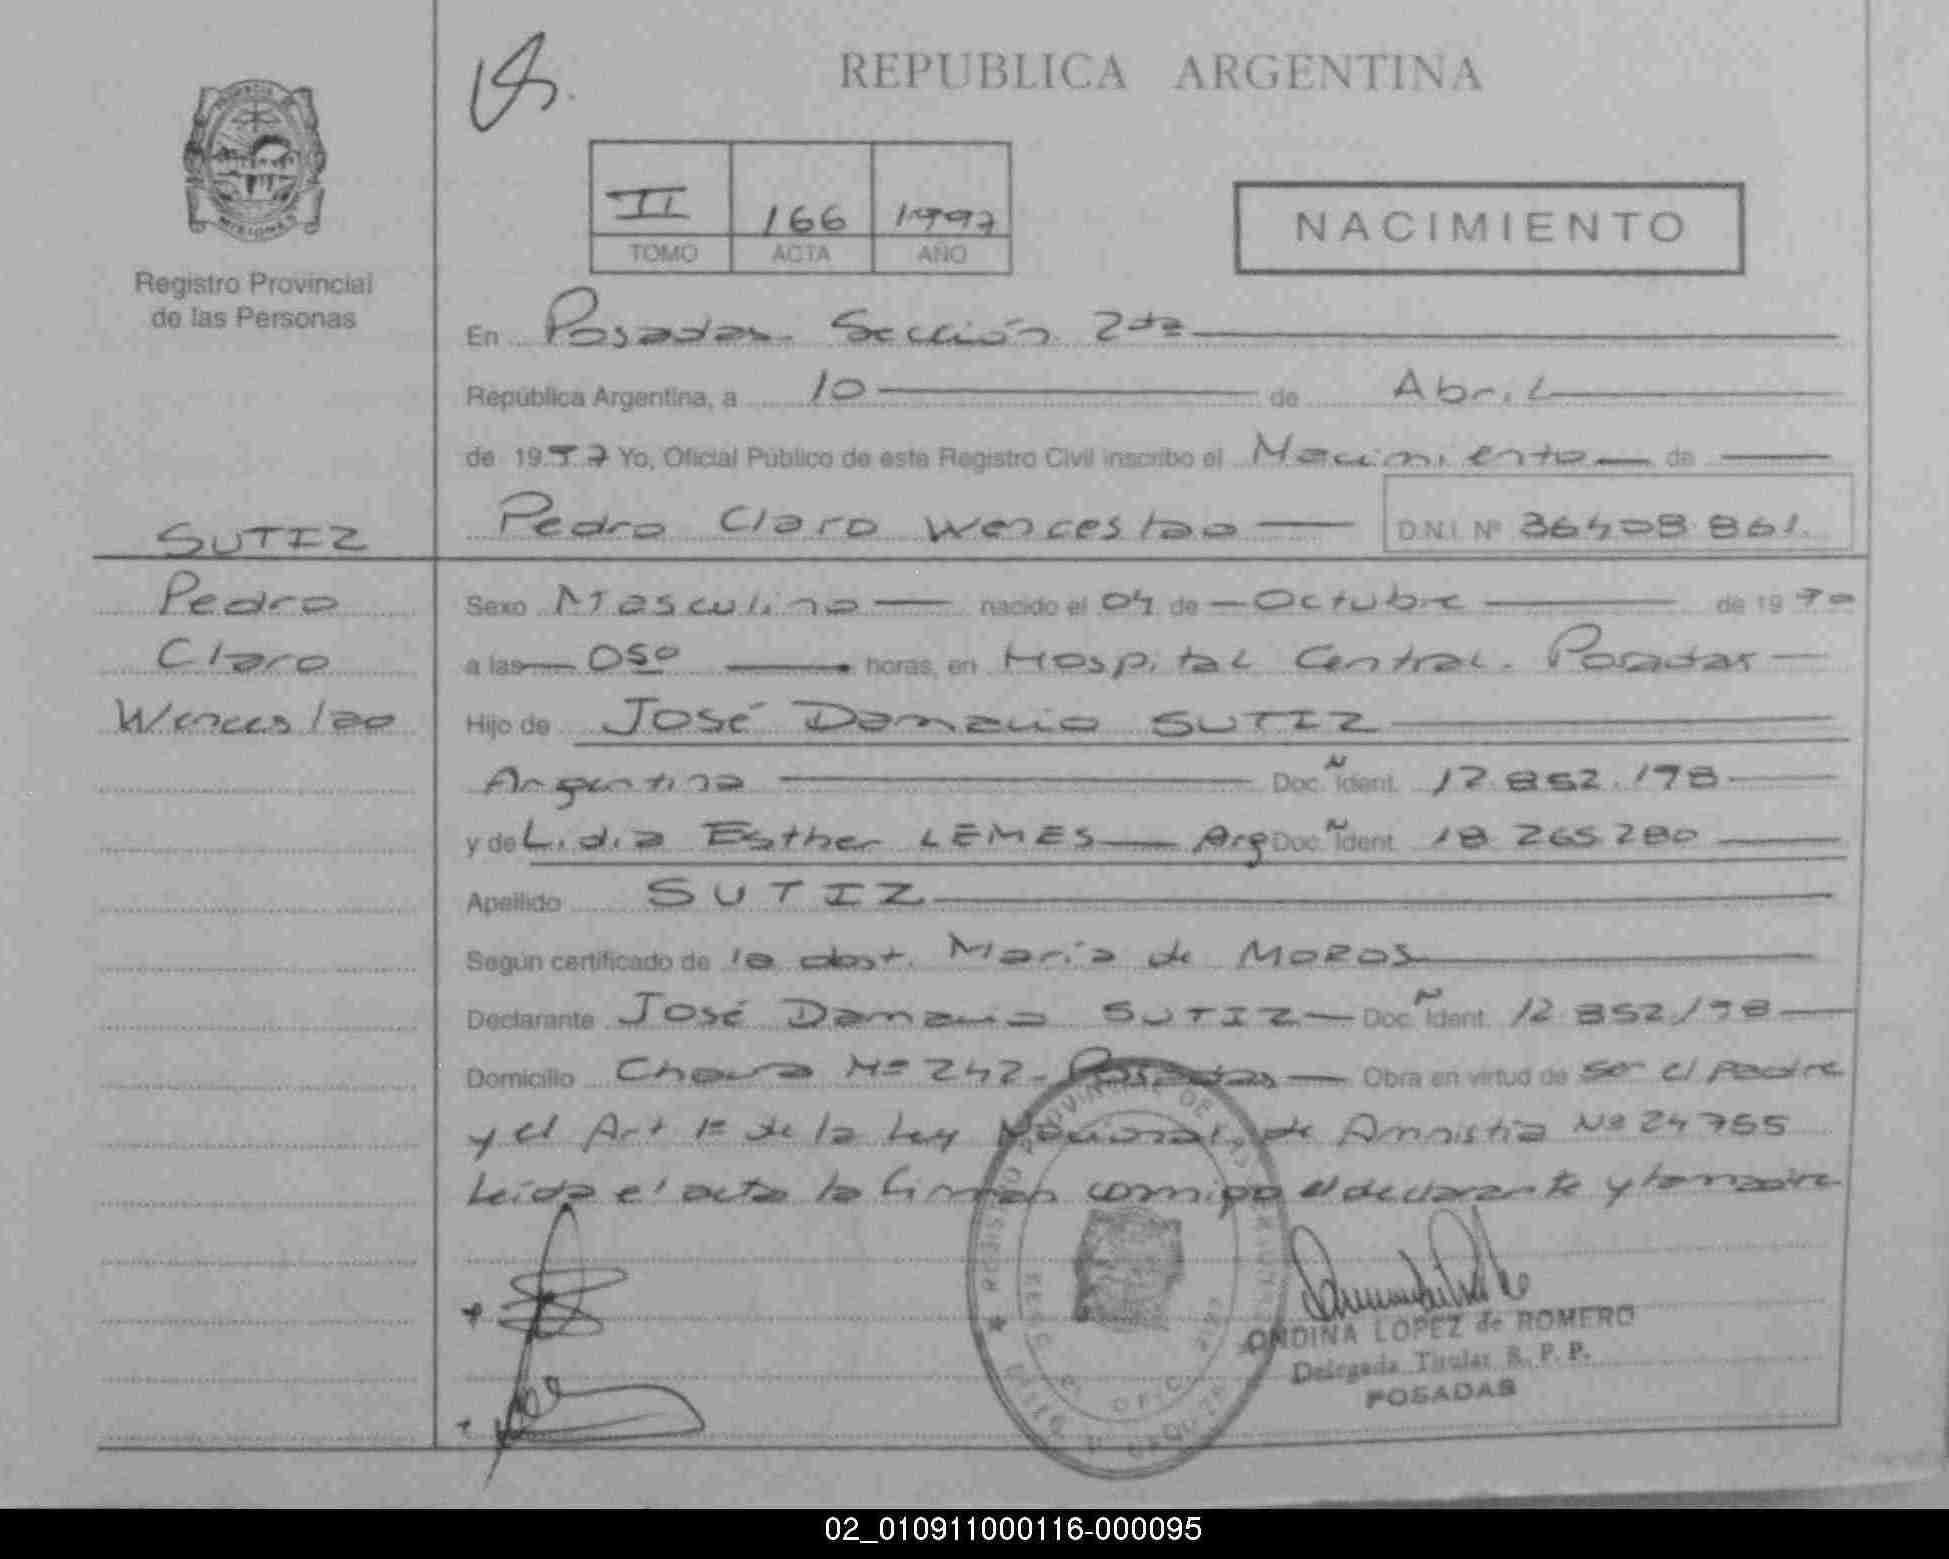 REPUBLICA ARGENTINA
II 166 1997
TOMO ACTA AÑO
NACIMIENTO
Registro Provincial
de las Personas
En Posadas. Sección 2da
República Argentina, a 10 de Abril
de 1997 Yo, Oficial Público de este Registro Civil inscribo el Nacimiento de
SUTIZ
Pedro Claro Wenceslao D.N.I. Nº 36408861.
Pedro
Claro
Wenceslao
Sexo Masculino nacido el 04 de Octubre de 19
a las 05º horas, en Hospital Central. Posadas
Hijo de José Damacio SUTIZ
Argentina Doc. Ñ Ident. 12.852.198
y de Lidia Esther LEMES Arg Doc. Ñ Ident. 18.265.280
Apellido SUTIZ
Según certificado de la obst. María de MOROS
Declarante José Damacio SUTIZ Doc. Ñ Ident. 12.852.198
Domicilio Nº 242. Posadas Obra en virtud de ser el padre
y el Art 1º de la Ley Nacional de Amnistía Nº 24755
Leída el acta la firman conmigo el declarante y la madre
REGISTRO PROVINCIAL DE LAS PERSONAS
ONDINA LOPEZ de ROMERO
Delegada Titular R. P. P.
POSADAS
02_010911000116-000095